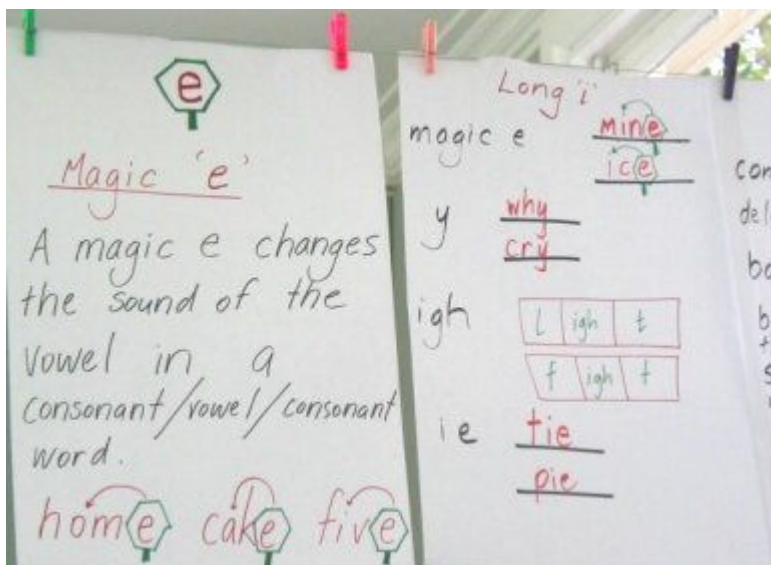 e
Magic 'e'
A magic e changes
the sound of the
vowel in a
consonant/vowel/consonant
word.
home cake five
Long 'i'
magic e mine
ice
y why
cry
igh l igh t
f igh t
ie tie
pie